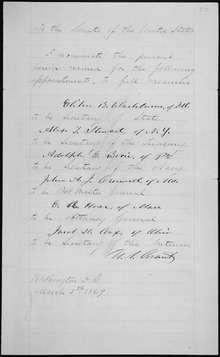 To the Senate of the United States.
I nominate the persons
herein named for the following
appointments, to fill vacancies
Elihu B. Washburne, of Ill.
to be Secretary of State.
Alex. T. Stewart of N.Y.
to be Secretary of the Treasury
Adolph E. Borie, of Pa
to be Secretary of the Navy
John A. J. Creswell of Md.
to be Post Master General
E. R. Hoar, of Mass
to be Attorney General
Jacob D. Cox, of Ohio
to be Secretary of the Interior
U. S. Grant
Washington D.C.
March 5th 1869.